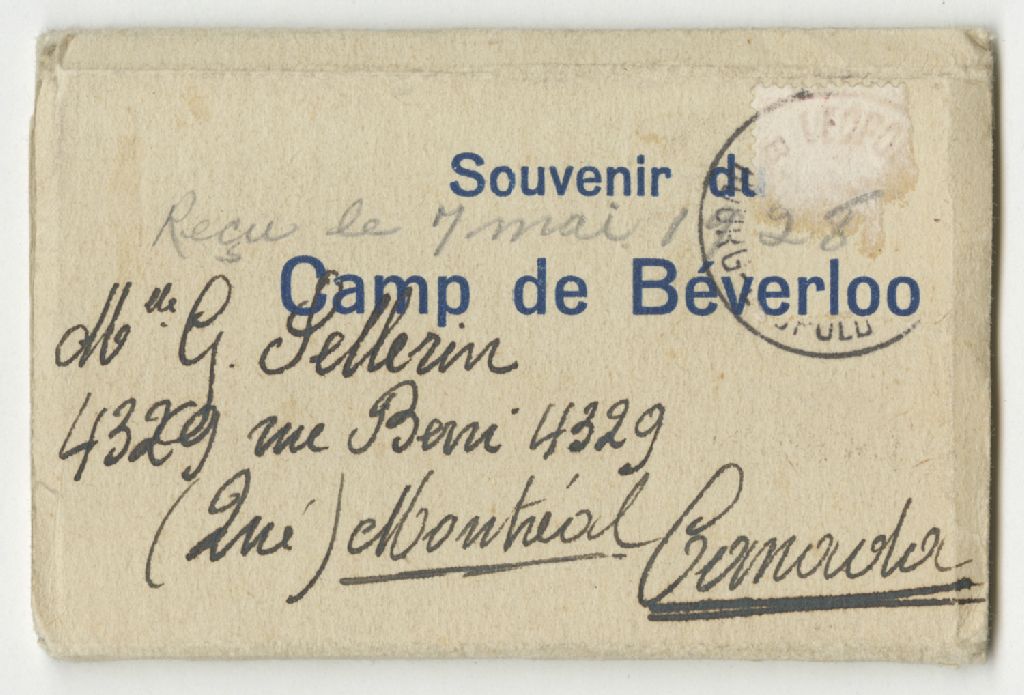 Souvenir du
Reçu le 7 mai 1928
Camp de Béverloo
Mlle G. Pellerin
4329 rue Berri 4329
(Qué) Montréal Canada
LEOPOLD